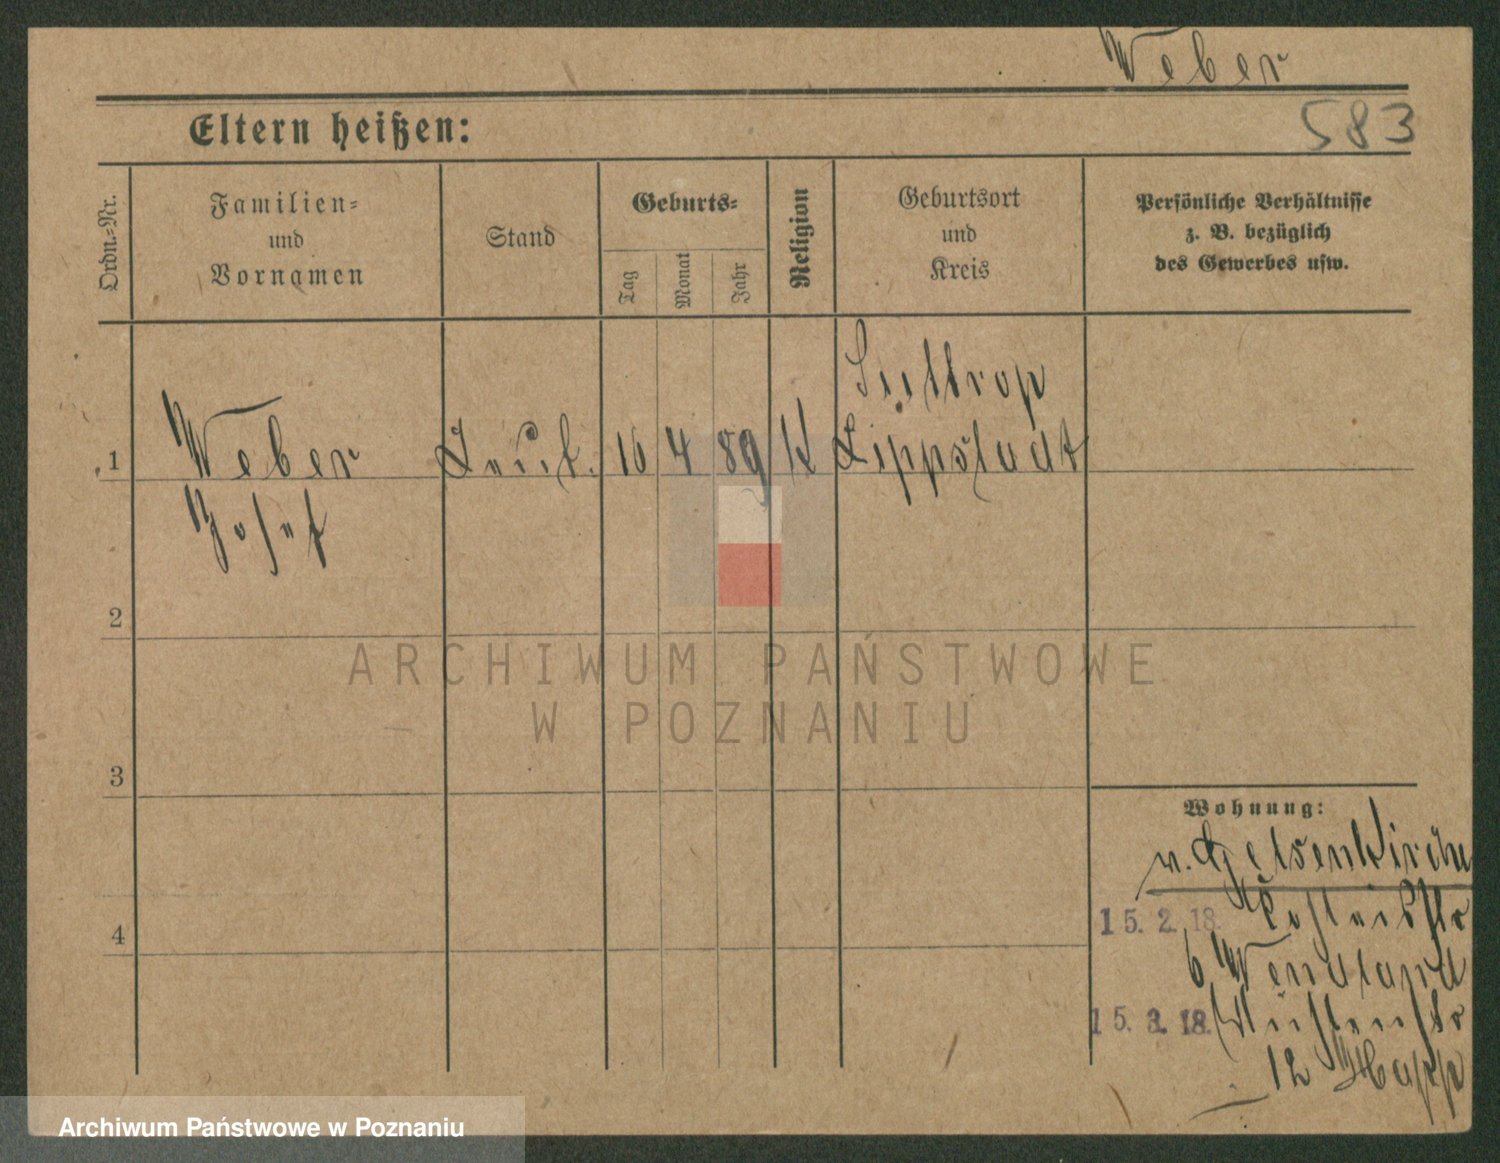 Weber
583
Eltern heißen:
Ordn.-Nr.
Familien-
und
Vornamen
Stand
Geburts-
Tag
Monat
Jahr
Religion
Geburtsort
und
Kreis
Persönliche Verhältnisse
z. B. bezüglich
des Gewerbes usw.
Suttrop
1 Weber 4 89 K Lippstadt
Josef
2
3
4
ARCHIWUM PAŃSTWOWE
W POZNANIU
Wohnung:
v. Gelsenkirchen
15. 2. 18.
6 Wendland
15. 3. 18.
12 Happ
Archiwum Państwowe w Poznaniu